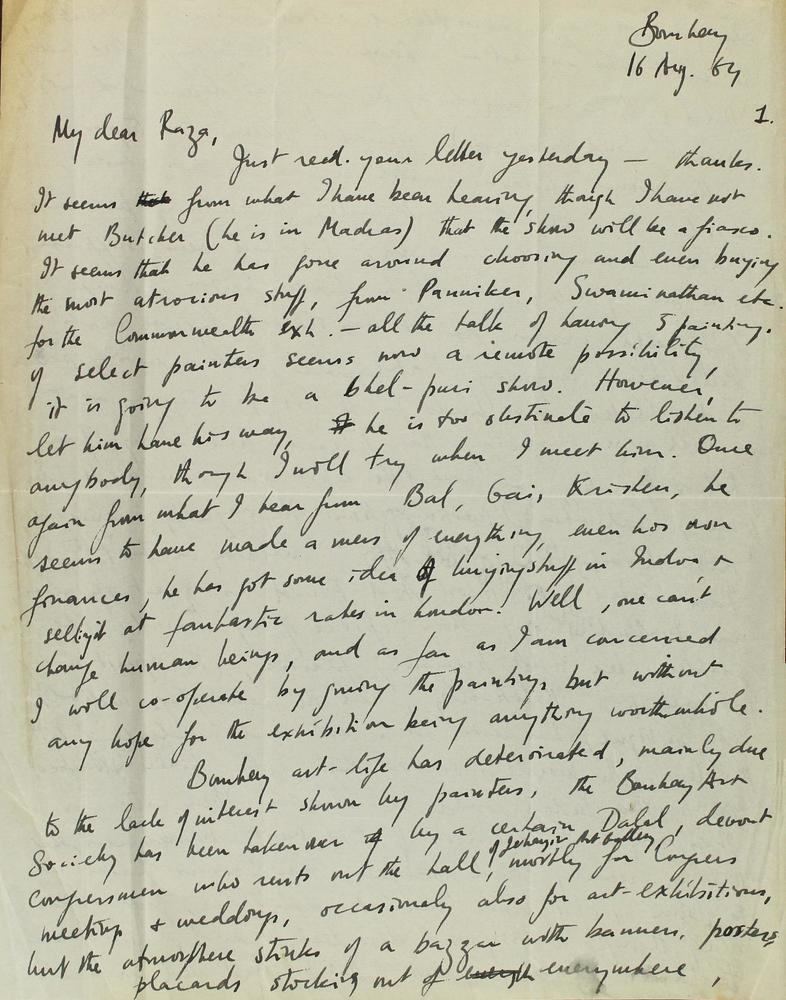 Bombay
16 Aug. 64
1.
My dear Raza,
Just recd. your letter yesterday — thanks.
It seems that from what I have been hearing, though I have not
met Butcher (he is in Madras) that the show will be a fiasco.
It seems that he has gone around choosing and even buying
the most atrocious stuff, from Panniker, Swaminathan etc.
for the Commonwealth exh. — all the talk of having 5 paintings
of select painters seems now a remote possibility,
it is going to be a bhel-puri show. However,
let him have his way, he is too obstinate to listen to
anybody, though I will try when I meet him. Once
again from what I hear from Bal, Gai, Krishen, he
seems to have made a mess of everything, even his own
finances, he has got some idea of buying stuff in India &
selling it at fantastic rates in London. Well, one can't
change human beings, and as far as I am concerned
I will co-operate by giving the paintings but without
any hope for the exhibition being anything worthwhile.
Bombay art-life has deteriorated, mainly due
to the lack of interest shown by painters, the Bombay Art
Society has been taken over by a certain Dalal, devout
of Jehangir Art Gallery
congressmen who rents out the hall, mostly for Congress
meetings & weddings, occasionally also for art-exhibitions,
but the atmosphere stinks of a bazzar with banners, posters
placards sticking out of everywhere,